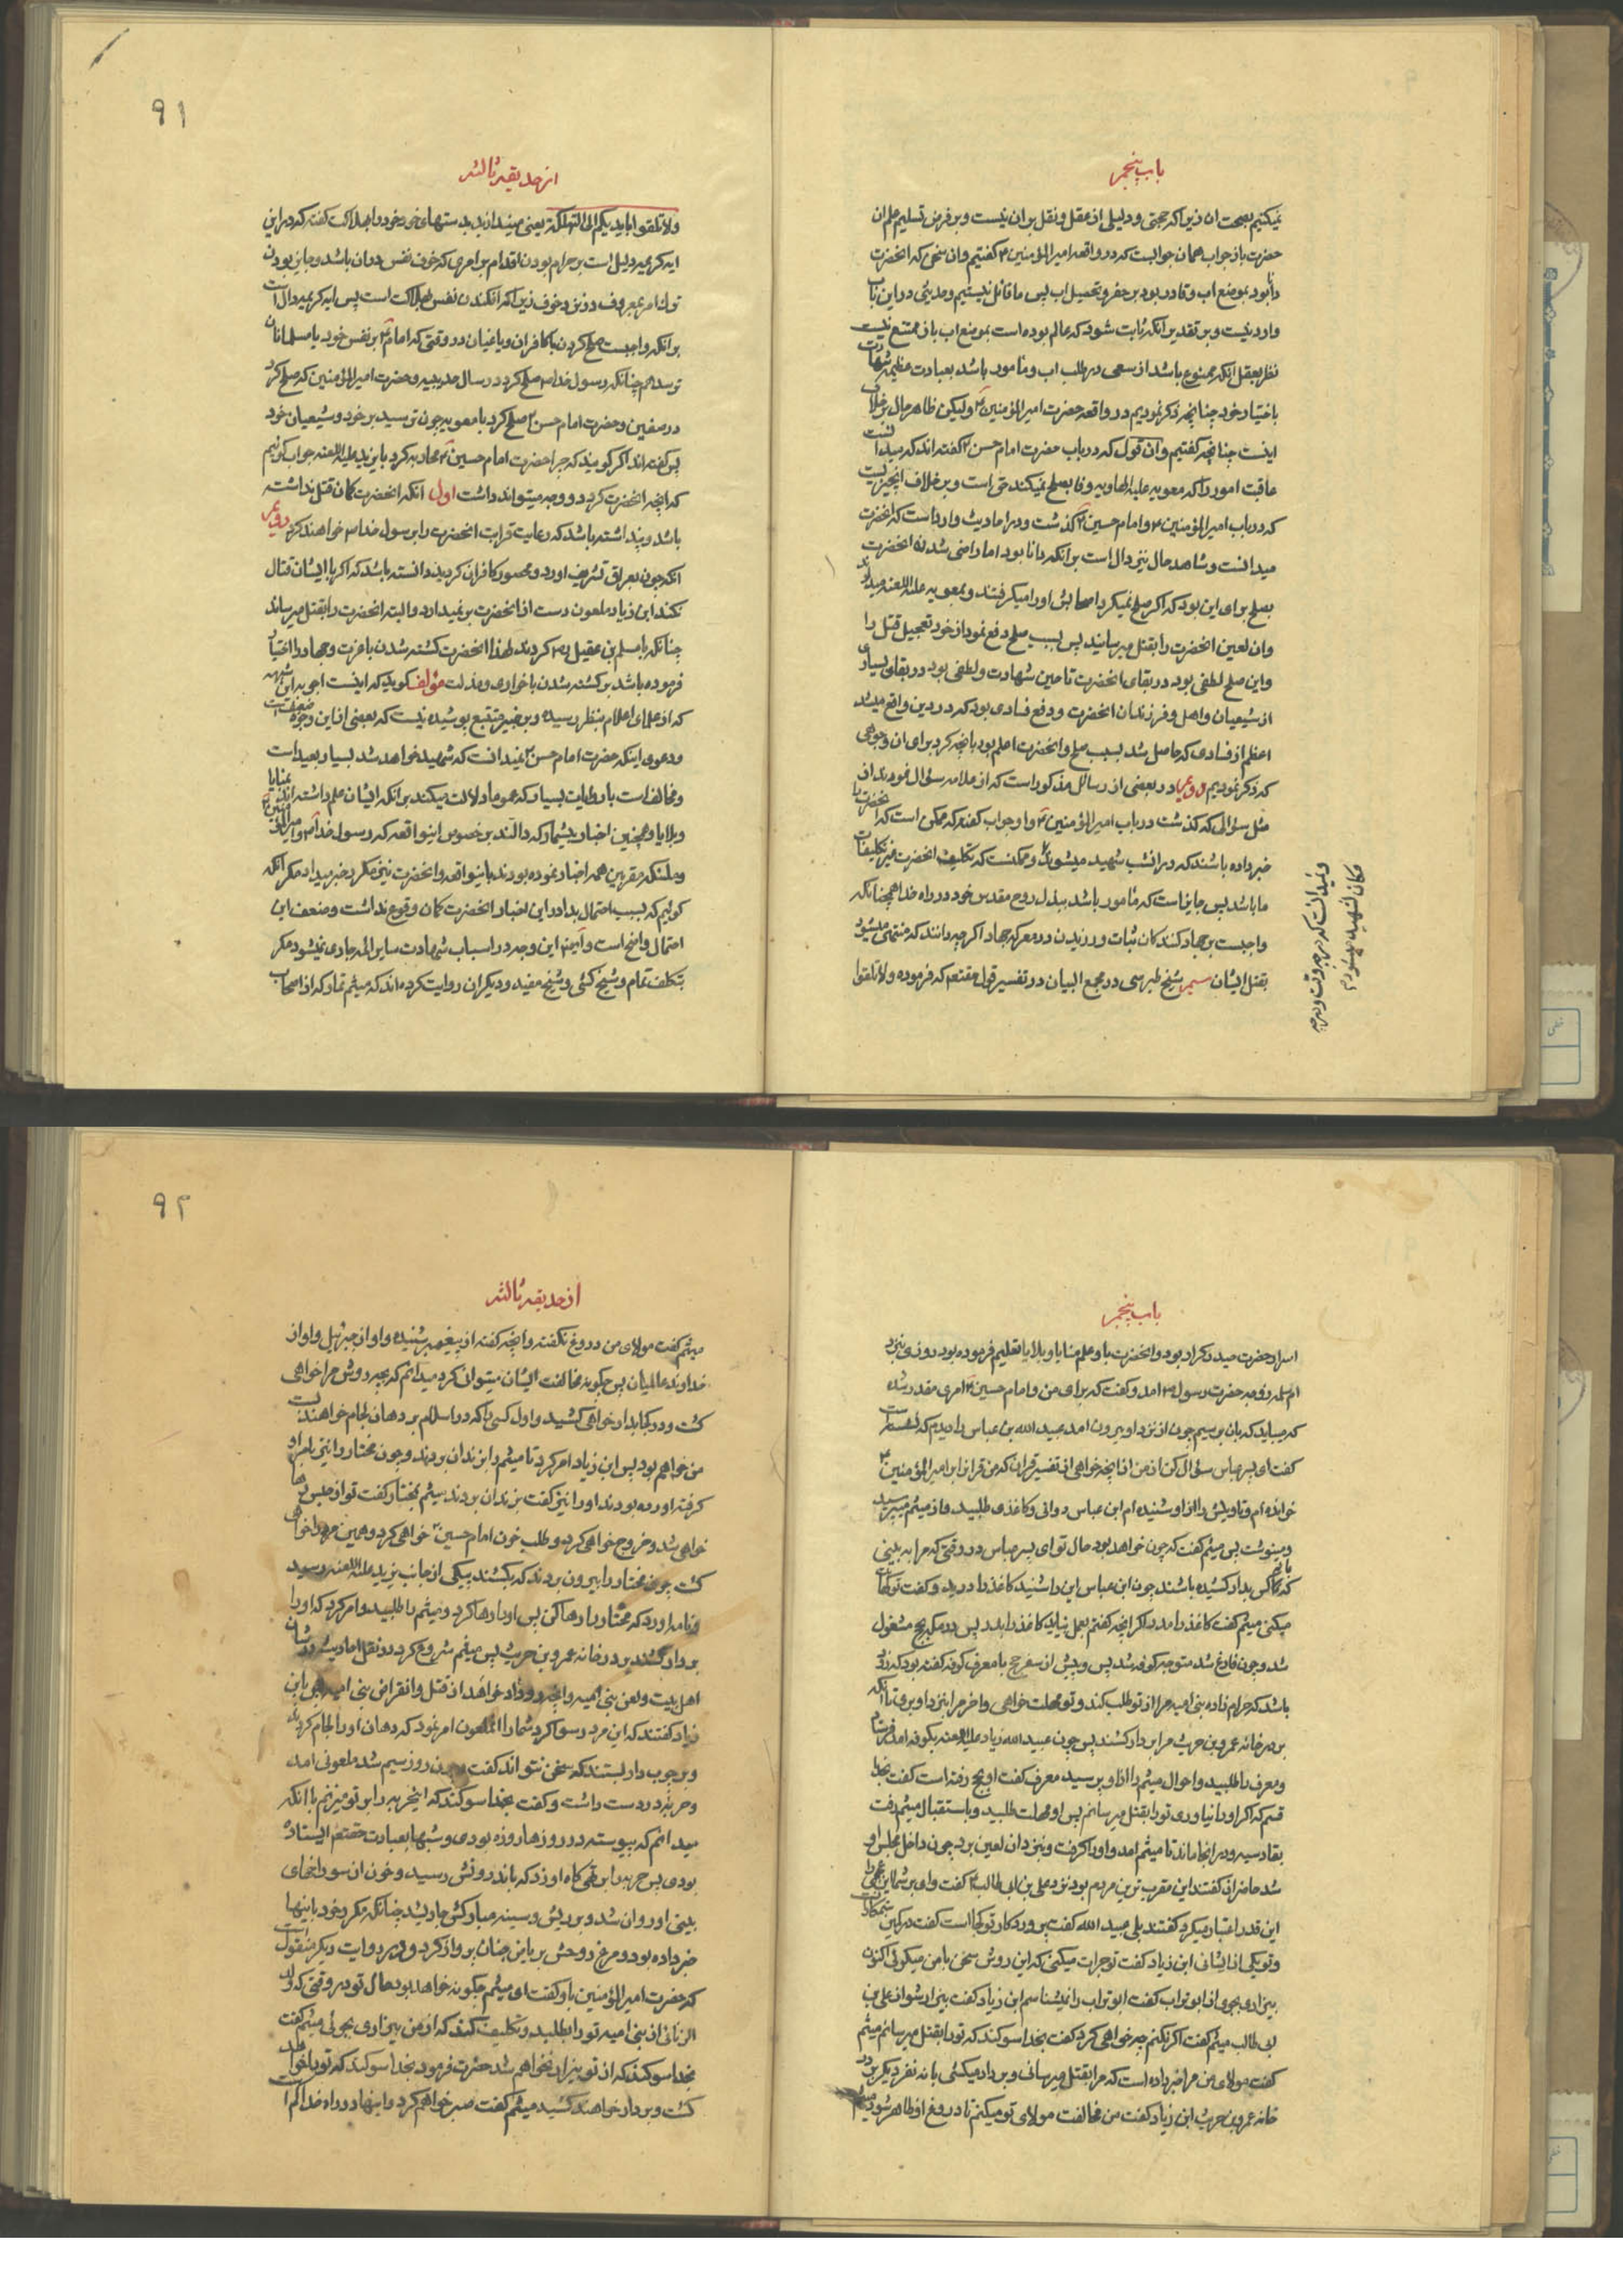 باب پنجم
نمیکنیم بصحت ان زیرا که حجتی و دلیلی از عقل و نقل بر ان نیست و بر فرض تسلیم علم ان
حضرت باز جواب همان جوابست که در واقعه امیرالمؤمنین ع کفتیم و ان سخن که انحضرت
دانا بود بموضع اب و قادر بود بر حفر و تحصیل اب پس ما قائل نیستیم و حدیثی در این باب
وارد نیست و بر تقدیر انکه ثابت شود که عالم بوده است بموضع اب باز ممتنع نیست
نظر بعقل انکه ممنوع باشد از سعی در طلب اب و مامور باشد بعبادت عظیمه شهادت
باختیار خود چنانچه ذکر نمودیم در واقعه حضرت امیرالمؤمنین ع ولیکن ظاهر حال بر خلاف
اینست چنانچه کفتیم و ان قول که در باب حضرت امام حسن ع کفته اند که میدانست
عاقبت امور را که معویه علیه الهاویه وفا بصلح نمیکند حق است و بر خلاف انچیزیست
که در باب امیرالمؤمنین ع و امام حسین ع کذشت و در احادیث وارد است که انحضرت
میدانست و شاهد حال نیز دال است بر انکه دانا بود اما راضی شدن انحضرت
بصلح برای این بود که اکر صلح نمیکرد اصحابش او را میکرفتند و بمعویه علیه اللعنه میدادند
و ان لعین انحضرت را بقتل میرسانید پس بسبب صلح دفع نمود از خود تعجیل قتل را
و این صلح لطفی بود در بقای انحضرت تا حین شهادت و لطفی بود در بقای بسیاری
از شیعیان و اهل و فرزندان انحضرت و دفع فسادی بود که در دین واقع میشد
اعظم از فسادی که حاصل شد بسبب صلح و انحضرت اعلم بود بانچه کرد برای ان وجوهی
که ذکر نمودیم و در بعضی از رسائل مذکور است که از علامه سؤال نمودند از
مثل سؤالی که کذشت در باب امیرالمؤمنین ع و او جواب کفته که ممکن است که انحضرت را
خبر داده باشند که در انشب شهید میشود و ممکنست که تکلیف انحضرت غیر تکلیفات
ما باشد پس جایز است که مامور باشد ببذل روح مقدس خود در راه خدا همچنانکه
واجبست بر جهاد کنندکان ثبات ورزیدن در معرکه جهاد اکرچه دانند که منتهی میشود
بقتل ایشان سیم شیخ طبرسی در مجمع البیان در تفسیر قول حقتعالی که فرموده ولا تلقوا
و نمیدانست که در چه وقت و در چه
مکان شهید میشود
۹۱
از حدیقه ثالثه
ولا تلقوا بایدیکم الی التهلکة یعنی میندازید بدستهای خود خود را بهلاکت کفته که در این
ایه کریمه دلیل است بر حرام بودن اقدام بر امری که خوف نفس در ان باشد و جایز بودن
ترک امر بمعروف در نزد خوف زیرا که افکندن نفس بهلاکت است پس ایه کریمه دال است
بر انکه واجبست صلح کردن با کافران و یاغیان در وقتی که امام ع بر نفس خود یا مسلمانان
ترسد همچنانکه رسول خدا ص صلح کرد در سال حدیبیه و حضرت امیرالمؤمنین که صلح کرد
در صفین و حضرت امام حسن ع صلح کرد با معویه چون ترسید بر خود و شیعیان خود
پس کفته اند اکر کویند که چرا حضرت امام حسین ع محاربه کرد با یزید علیه اللعنه جواب کوئیم
که انچه انحضرت کرد دو وجه میتواند داشت اول انکه انحضرت کمان قتل نداشته
باشد و پنداشته باشد که رعایت قرابت انحضرت را برسول خدا ص خواهند کرد دویم
انکه چون بعراق تشریف اورد و محصور کافران کردید دانسته باشد که اکر با ایشان قتال
نکند ابن زیاد ملعون دست از انحضرت بر نمیدارد و البته انحضرت را بقتل میرساند
چنانکه با مسلم بن عقیل ره کردند لهذا انحضرت کشته شدن با عزت و جهاد را اختیار
فرموده باشد بر کشته شدن با خواری و مذلت مؤلف کوید که اینست اجوبه این شبهه
که از علمای اعلام بنظر رسیده و بر خبیر متتبع پوشیده نیست که بعضی از این وجوه ضعیفست
و دعوی اینکه حضرت امام حسین ع نمیدانست که شهید خواهد شد بسیار بعید است
و مخالف است با روایات بسیار که عموما دلالت میکنند بر انکه ایشان علم داشته اند بمنایا
و بلایا و همچنین اخبار بیشمار که دالند بر خصوص اینواقعه که رسول خدا ص و امیرالمؤمنین ع
و ملئکه مقربین همه اخبار نموده بودند باینواقعه و انحضرت نیز مکرر خبر میداد مکر انکه
کوئیم که بسبب احتمال بدا در این اخبار انحضرت کمان وقوع نداشت و ضعف این
احتمال واضح است و ایضا این وجه در اسباب شهادت سایر ائمه جاری نمیشود مکر
بتکلف تمام و شیخ کشی و شیخ مفید و دیکران روایت کرده اند که میثم تمار که از اصحاب
باب پنجم
اسرار حضرت حیدر کرار بود و انحضرت باو علم منایا و بلایا تعلیم فرموده بود روزی بنزد
ام سلمه زوجه حضرت رسول ص امد و کفت که برای من و امام حسین ع امری مقدر شده
که میباید که بان برسیم چون از نزد او بیرون امد عبید الله بن عباس را دیدم که نشسته است
کفت ای پسر عباس سؤال کن از من از انچه خواهی از تفسیر قران که من قران بر امیرالمؤمنین ع
خوانده ام و تاویلش را از او شنیده ام ابن عباس دواتی و کاغذی طلبید و از میثم میپرسید
و مینوشت پس میثم کفت که چون خواهد بود حال تو ای پسر عباس در وقتی که مرا به بینی
که نهم کس بدار کشیده باشند چون ابن عباس این را شنید کاغذ را درید و کفت تو کهانت
میکنی میثم کفت کاغذ را مدر اکر انچه کفتم بعمل نیاید کاغذ را بدر پس در مکه بحج مشغول
شد و چون فارغ شد متوجه کوفه شد پس و پیش از سفر حج با معرف کوفه کفته بود که زود
باشد که حرام زاده بنی امیه مرا از تو طلب کند و تو مهلت خواهی و اخر مرا بنزد او بری تا انکه
بر در خانه عمرو بن حریث مرا بر دار کشند پس چون عبید الله زیاد علیه اللعنه بکوفه امد فرستاد
و معرف را طلبید و احوال میثم را از او پرسید معرف کفت او بحج رفته است کفت بخدا
قسم که اکر او را نیاوری تو را بقتل میرسانم پس او مهلت طلبید و باستقبال میثم رفت
بقادسیه و در انجا ماند تا میثم امد و او را کرفت و بنزد ان لعین برد چون داخل مجلس او
شد حاضران کفتند این مقرب ترین مردم بود نزد علی بن ابی طالب ع کفت وای بر شما این عجمی را
این قدر اعتبار میکرد کفتند بلی عبید الله کفت پروردکار تو کجا است کفت در کمین ستمکاران
و تو یکی از ایشانی ابن زیاد کفت تو جرات میکنی که این روش سخن با من میکوئی اکنون
بیزاری بجوی از ابو تراب کفت ابو تراب را نمیشناسم ابن زیاد کفت بیزار شو از علی بن
ابی طالب میثم کفت اکر نکنم چه خواهی کرد کفت بخدا سوکند که تو را بقتل میرسانم میثم
کفت مولای من مرا خبر داده است که مرا بقتل میرسانی و بر دار میکشی با نه نفر دیکر بر در
خانه عمرو بن حریث ابن زیاد کفت من مخالفت مولای تو میکنم تا دروغ او ظاهر شود
۹۲
از حدیقه ثالثه
میثم کفت مولای من دروغ نکفته و انچه کفته از پیغمبر شنیده و او از جبرئیل و او از
خداوند عالمیان پس چکونه مخالفت ایشان میتوان کرد میدانم که بچه روش مرا خواهی
کشت و در کجا بدار خواهی کشید و اول کسی را که در اسلام بر دهان لجام خواهند بست
من خواهم بود پس ابن زیاد امر کرد تا میثم را بزندان بردند و چون مختار را نیز بامر او
کرفته اورده بودند او را نیز کفت بزندان بردند میثم بمختار کفت تو از حبس رها
خواهی شد و خروج خواهی کرد و طلب خون امام حسین ع خواهی کرد و همین مرد را خواهی
کشت چون مختار را بیرون بردند که بکشند پیکی از جانب یزید علیه اللعنه رسید
و نامه اورد که مختار را رها کن پس او را رها کرد و میثم را طلبید و امر کرد که او را
بر دار کشند بر در خانه عمرو بن حریث پس میثم شروع کرد در نقل احادیث در شان
اهل بیت و لعن بنی امیه و انچه رو داد خواهد از قتل و انقراض بنی امیه پس بابن
زیاد کفتند که این مرد رسوا کرد شما را ان ملعون امر نمود که دهان او را لجام کردند
و بر چوب دار بستند که سخن نتواند کفت چون روز سیم شد ملعونی امد
و حربه در دست داشت و کفت بخدا سوکند که این حربه را بر تو میزنم با انکه
میدانم که پیوسته در روزها روزه بودی و شبها بعبادت حقتعالی ایستاده
بودی پس حربه را بر تهی کاه او زد که باندرونش رسید و خون از سوراخهای
بینی او روان شد و بر ریش و سینه مبارکش جاری شد چنانکه مکرر خود باینها
خبر داده بود و مرغ روحش بریاض جنان پرواز کرد و در روایت دیکر منقول است
که حضرت امیرالمؤمنین باو کفت ای میثم چکونه خواهد بود حال تو در وقتی که ولد
الزنائی از بنی امیه تو را بطلبد و تکلیف کند که از من بیزاری بجوئی میثم کفت
بخدا سوکند که از تو بیزار نخواهم شد حضرت فرمود بخدا سوکند که تو را خواهد
کشت و بر دار خواهند کشید میثم کفت صبر خواهم کرد و اینها در راه خدا کم است